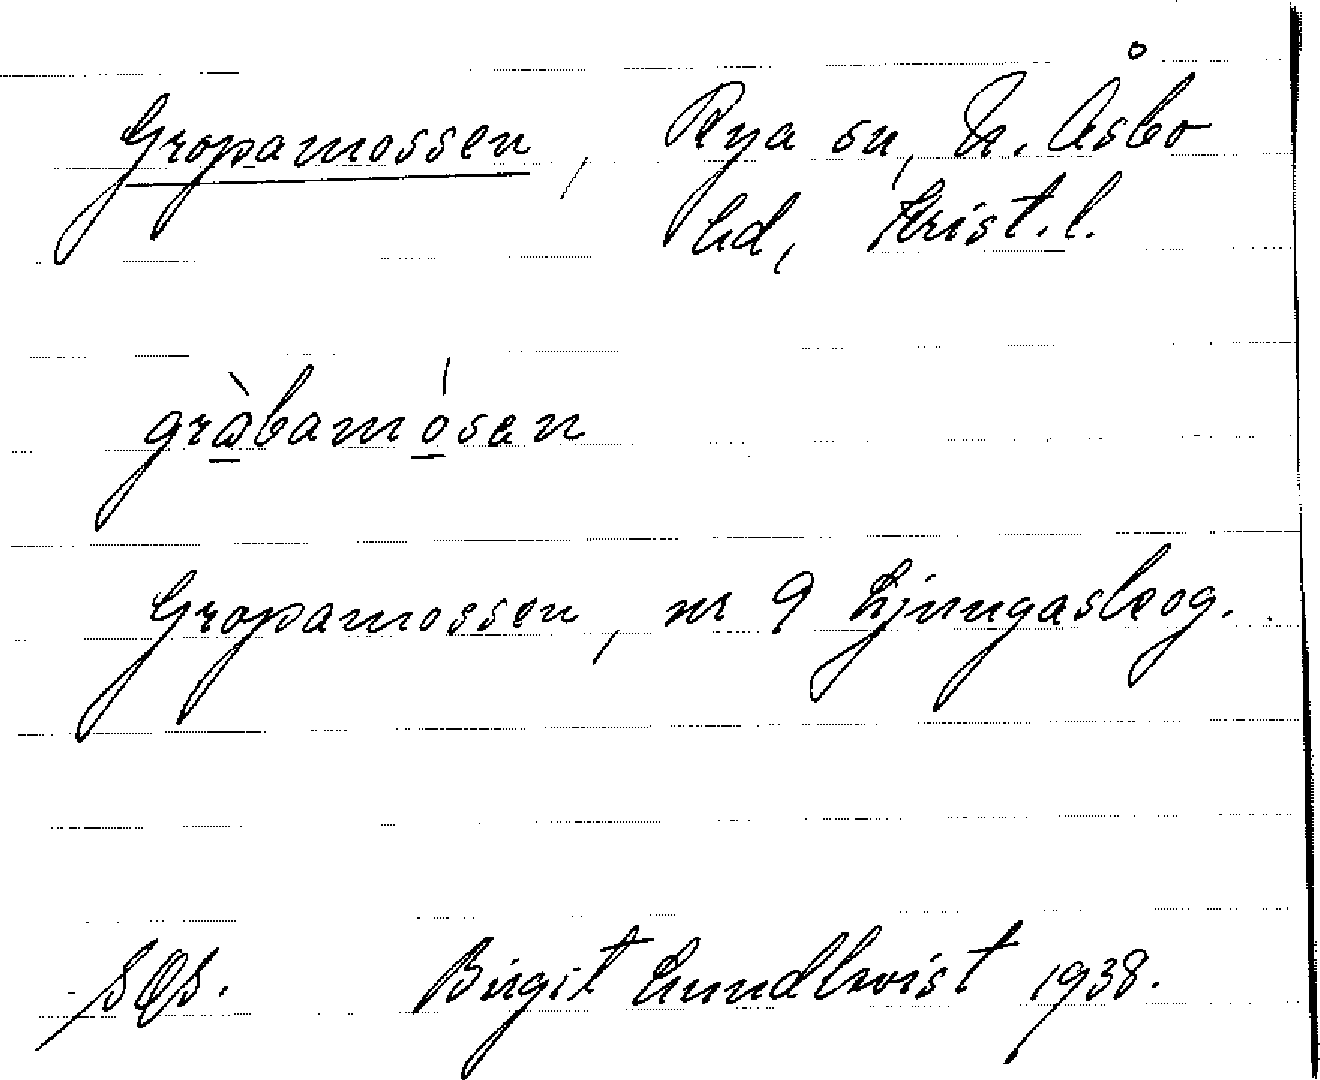 Gropamossen, Rya sn, N. Åsbo
hd, Krist. l.
gràbamósen
Gropamossen, nr 9 Ljungaskog.
Birgit Lundkvist 1938.